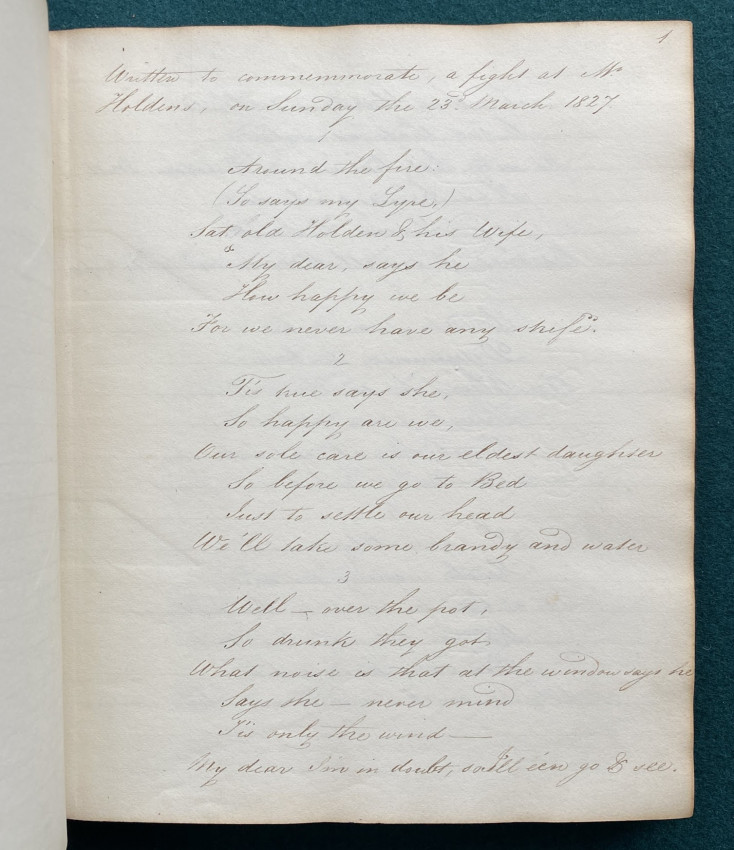 1
Written to commemmorate, a fight at Mr
Holdens, on Sunday the 23d. March 1827
1
Around the fire
(So says my Lyre,)
Sat old Holden & his Wife,
"My dear, says he
How happy we be
For we never have any strife".
2
Tis true says she,
So happy are we,
Our sole care is our eldest daughter
So before we go to Bed
Just to settle our head
We'll take some brandy and water
3
Well — over the pot,
So drunk they got
What noise is that at the window says he
Says she — never mind
Tis only the wind —
My dear I'm in doubt, so I'll e'en go & see.